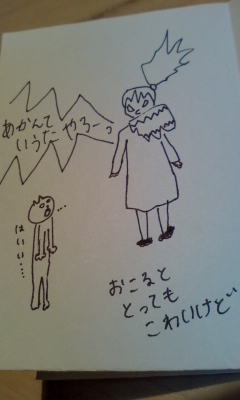 あかんて
いうたやろーっ
…
はいぃ…
おこると
とっても
こわいけど